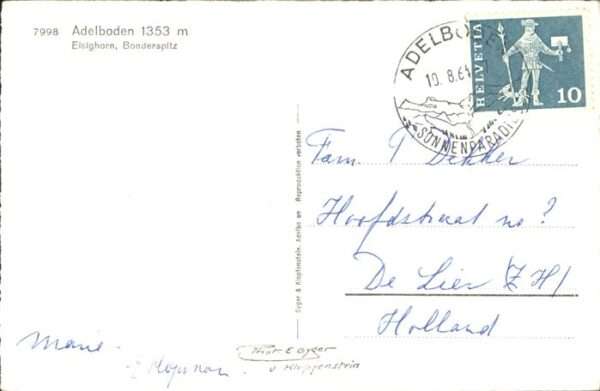 7998 Adelboden 1353 m
Elsighorn, Bonderspitz
HELVETIA
10
ADELBODEN
10.8.64
SONNENPARADIES
Fam T Dekker
Hoofdstraat no ?
De Lier (Z.H)
Holland
Gyger & Klopfenstein, Adelboden Reproduktion verboten
Marie.
Phot E Gyger
v Kloppenstein